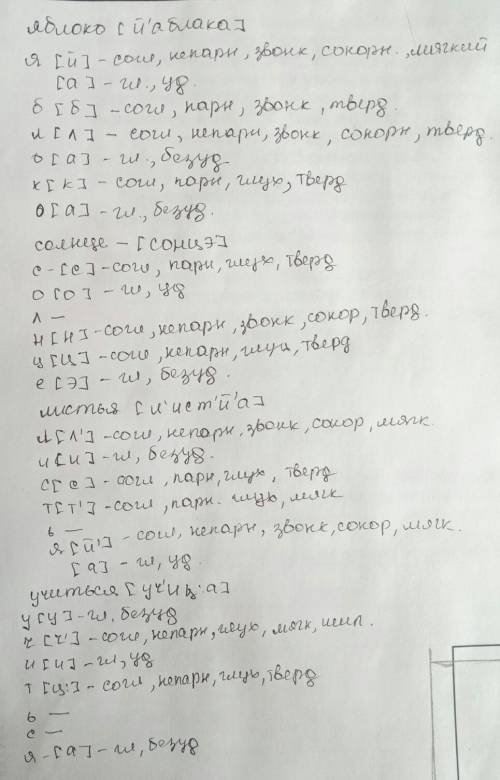 яблоко [й'аблака]
я [й] - согл, непарн, звонк, сокорн., мягкий
[а] - гл., уд.
б [б] - согл, парн, звонк, тверд.
л [л] - согл, непарн, звонк, сокорн, тверд.
о [а] - гл., безуд.
к [к] - согл, парн, глух, тверд
о [а] - гл., безуд.
солнце - [сонцэ]
с - [с] - согл, парн, глух, тверд
о [о] - гл, уд
л —
н [н] - согл, непарн, звонк, сокор, тверд.
ц [ц] - согл, непарн, глух, тверд
е [э] - гл, безуд.
листья [л'ист'й'а]
л [л'] - согл, непарн, звонк, сокор, мягк.
и [и] - гл, безуд.
с [с] - согл, парн, глух, тверд
т [т'] - согл, парн. глух, мягк
ь —
я [й'] - согл, непарн, звонк, сокор, мягк.
[а] - гл, уд.
учиться [уч'иц:а]
у [у] - гл, безуд
ч [ч'] - согл, непарн, глух, мягк, шип.
и [и] - гл, уд
т [ц:] - согл, непарн, глух, тверд
ь —
с —
я - [а] - гл, безуд